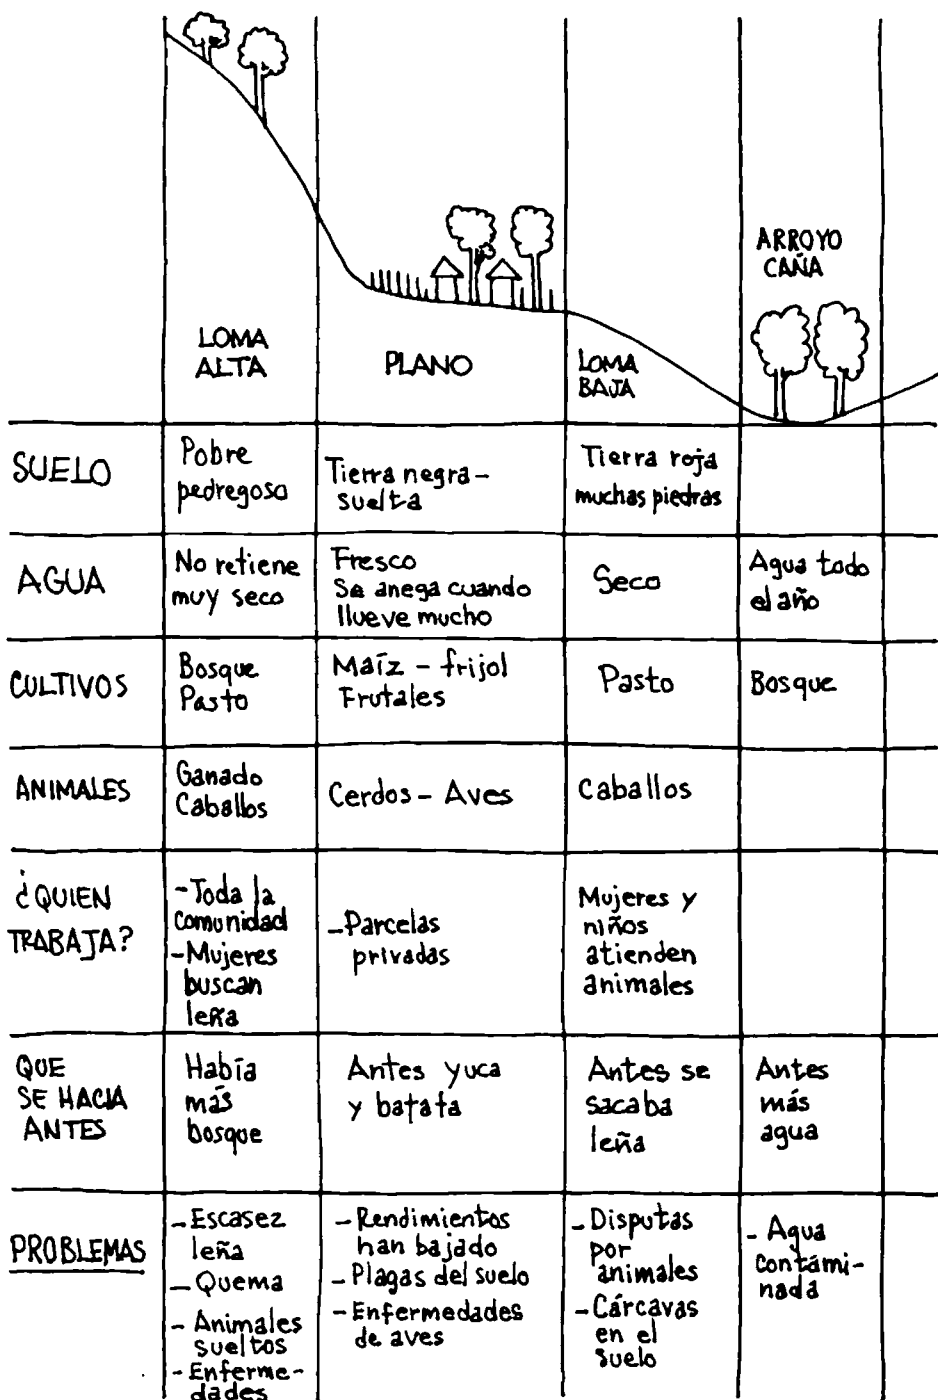 ARROYO
CAÑA
LOMA
ALTA
PLANO
LOMA
BAJA
SUELO
Pobre
pedregoso
Tierra negra-
suelta
Tierra roja
muchas piedras
AGUA
No retiene
muy seco
Fresco
Se anega cuando
llueve mucho
Seco
Agua todo
el año
CULTIVOS
Bosque
Pasto
Maíz - frijol
Frutales
Pasto
Bosque
ANIMALES
Ganado
Caballos
Cerdos - Aves
Caballos
¿QUIEN
TRABAJA?
-Toda la
comunidad
-Mujeres
buscan
leña
-Parcelas
privadas
Mujeres y
niños
atienden
animales
QUE
SE HACIA
ANTES
Había
más
bosque
Antes yuca
y batata
Antes se
sacaba
leña
Antes
más
agua
PROBLEMAS
-Escasez
leña
-Quema
-Animales
sueltos
-Enferme-
dades
-Rendimientos
han bajado
-Plagas del suelo
-Enfermedades
de aves
-Disputas
por
animales
-Cárcavas
en el
suelo
-Agua
contami-
nada